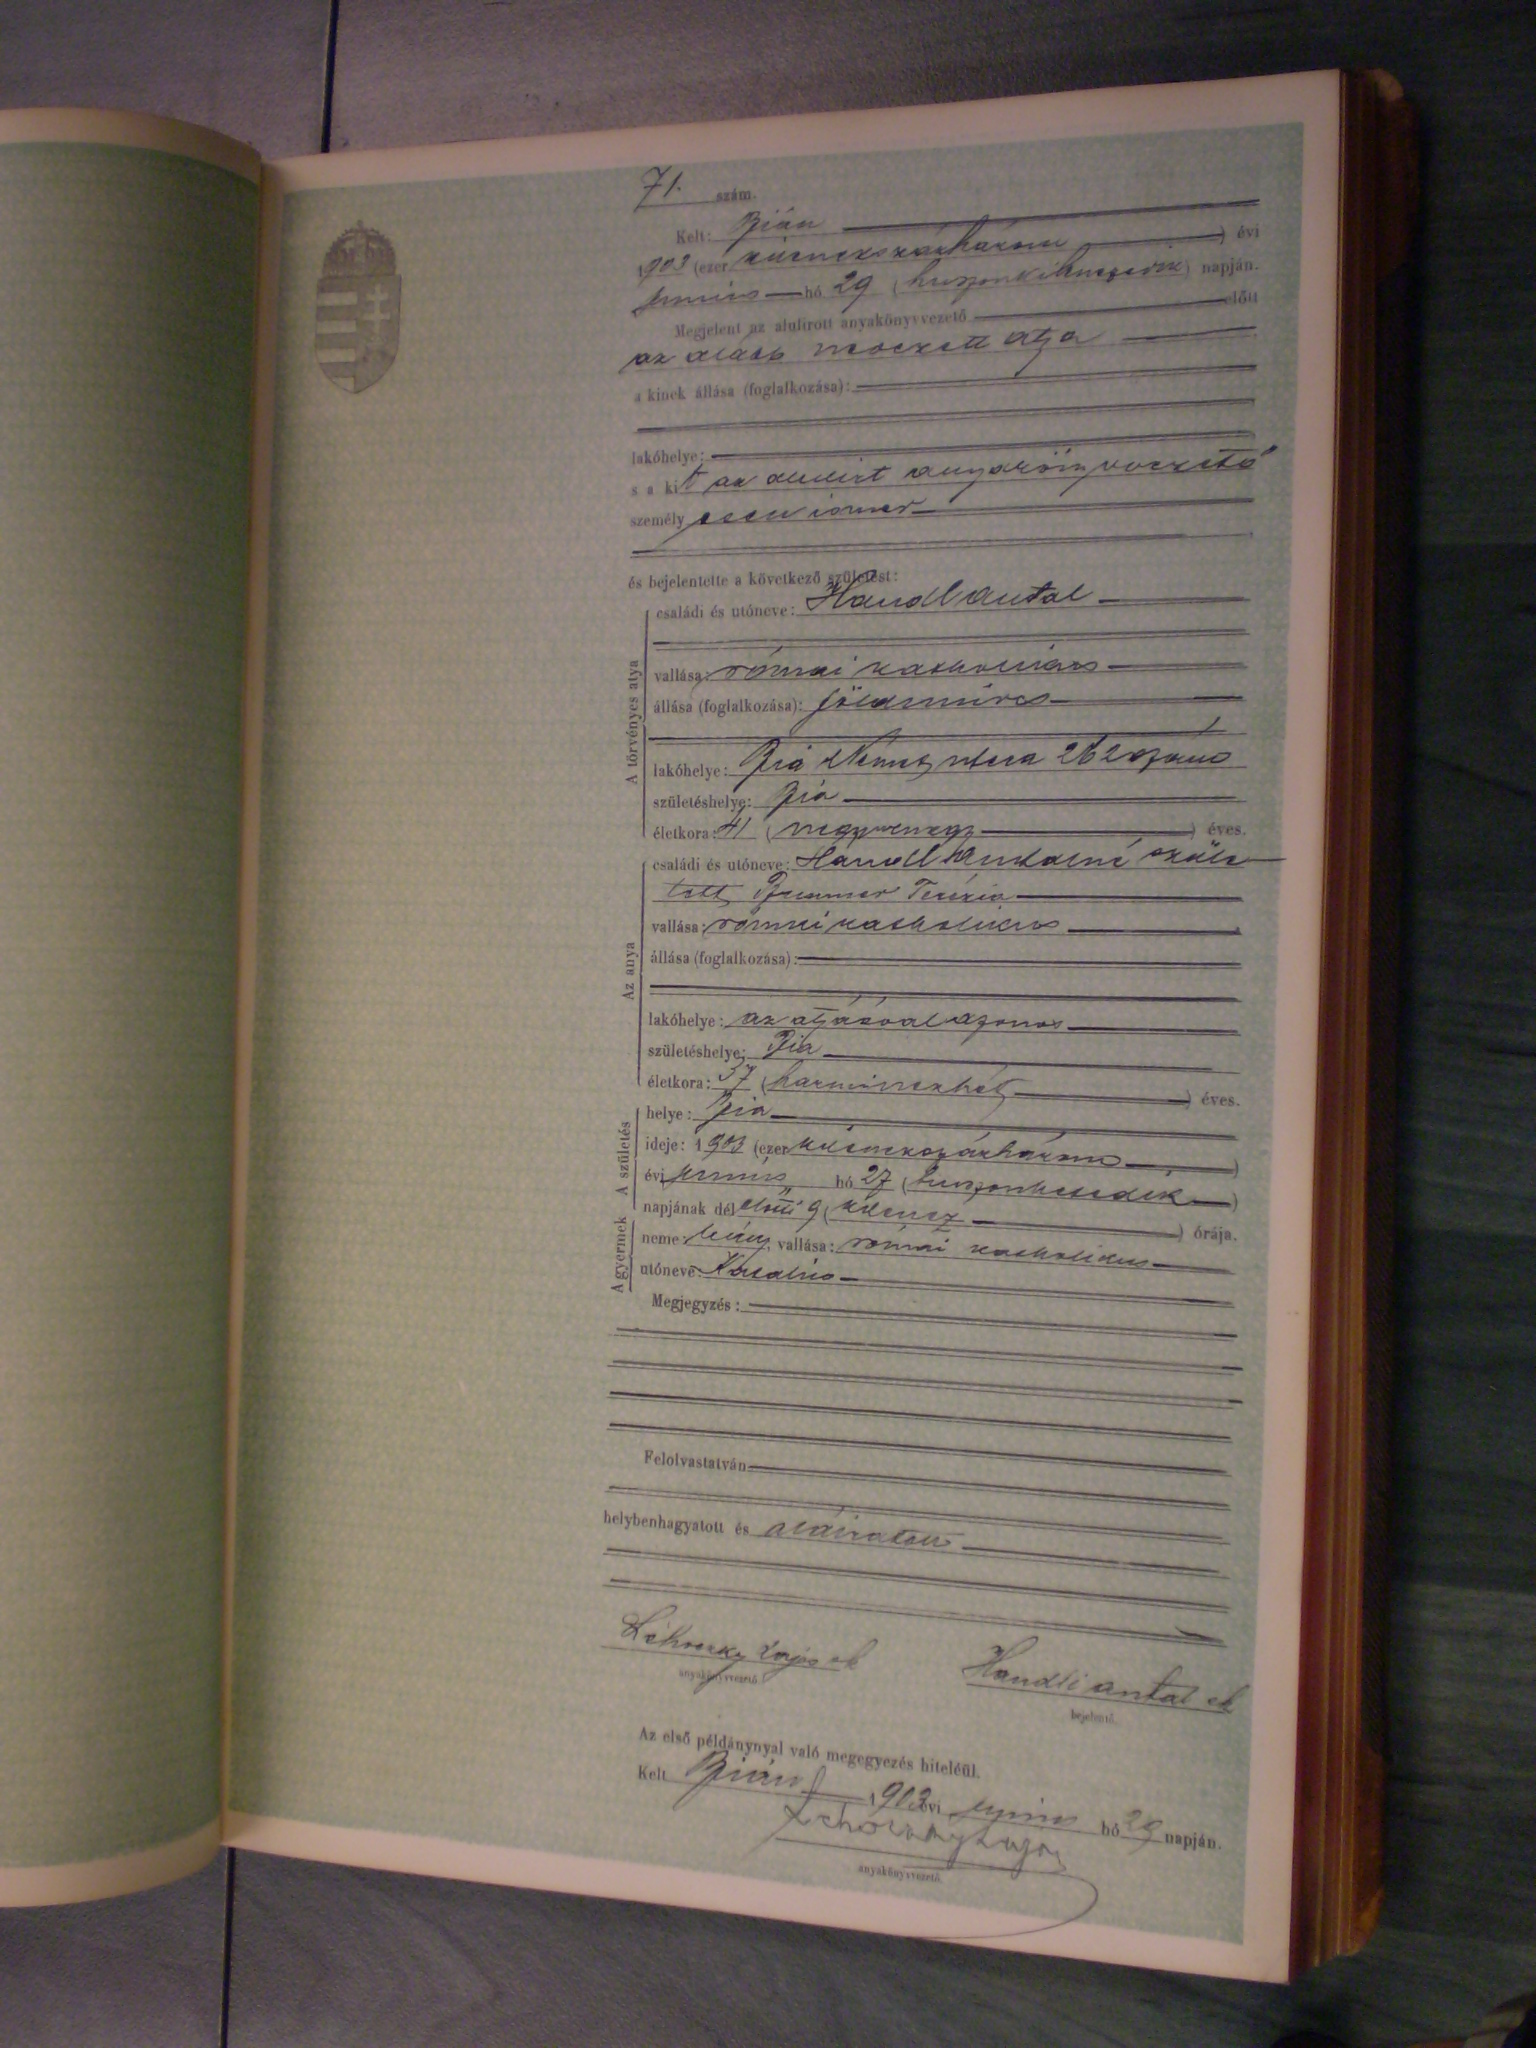 71. szám.
Kelt: Bián
1903 (ezer kilenczszázhárom ) évi
junius hó 29 (huszonkilenczedik) napján.
Megjelent az alulirott anyakönyvvezető előtt
az alább nevezett atya
a kinek állása (foglalkozása):
lakóhelye:
s a kit az alulirt anyakönyvvezető
személyesen ismer
és bejelentette a következő születést:
A törvényes atya
családi és utóneve: Handl Antal
vallása: római katholikus
állása (foglalkozása): földmíves
lakóhelye: Bia Német utcza 262 szám
születéshelye: Bia
életkora: 41 (negyvenegy ) éves.
Az anya
családi és utóneve: Handl Antalné szüle-
tett Terézia
vallása: római katholikus
állása (foglalkozása):
lakóhelye: az atyáéval azonos
születéshelye: Bia
életkora: 37 (harminczhét ) éves.
A születés
helye: Bia
ideje: 1903 (ezer kilenczszázhárom )
évi junius hó 27 (huszonhetedik )
napjának délelőtti 9 (kilencz ) órája.
A gyermek
neme: leány, vallása: római katholikus
utóneve: Katalin
Megjegyzés:
Felolvastatván
helybenhagyatott és aláiratott
Lajos sk
anyakönyvvezető.
Handli Antal sk
bejelentő.
Az első példánynyal való megegyezés hiteléül.
Kelt Bián 1903 évi junius hó 29 napján.
Lajos
anyakönyvvezető.